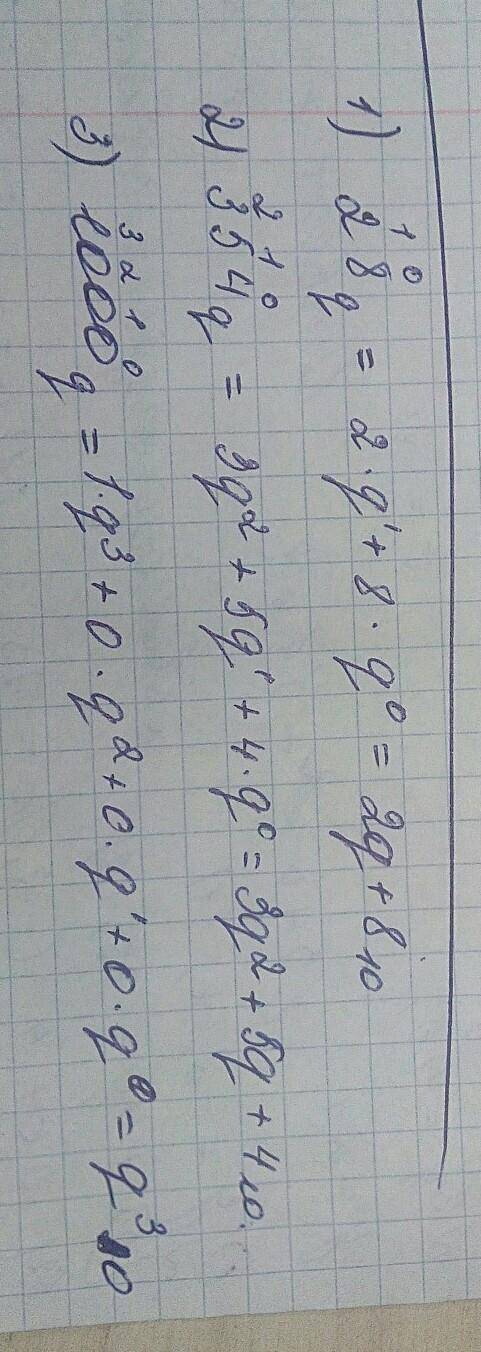 1) 2¹8⁰q = 2·q¹ + 8·q⁰ = 2q + 8₁₀
2) 3²5¹4⁰q = 3q² + 5q¹ + 4·q⁰ = 3q² + 5q + 4₁₀.
3) 1³0²0¹0⁰q = 1·q³ + 0·q² + 0·q¹ + 0·q⁰ = q³₁₀